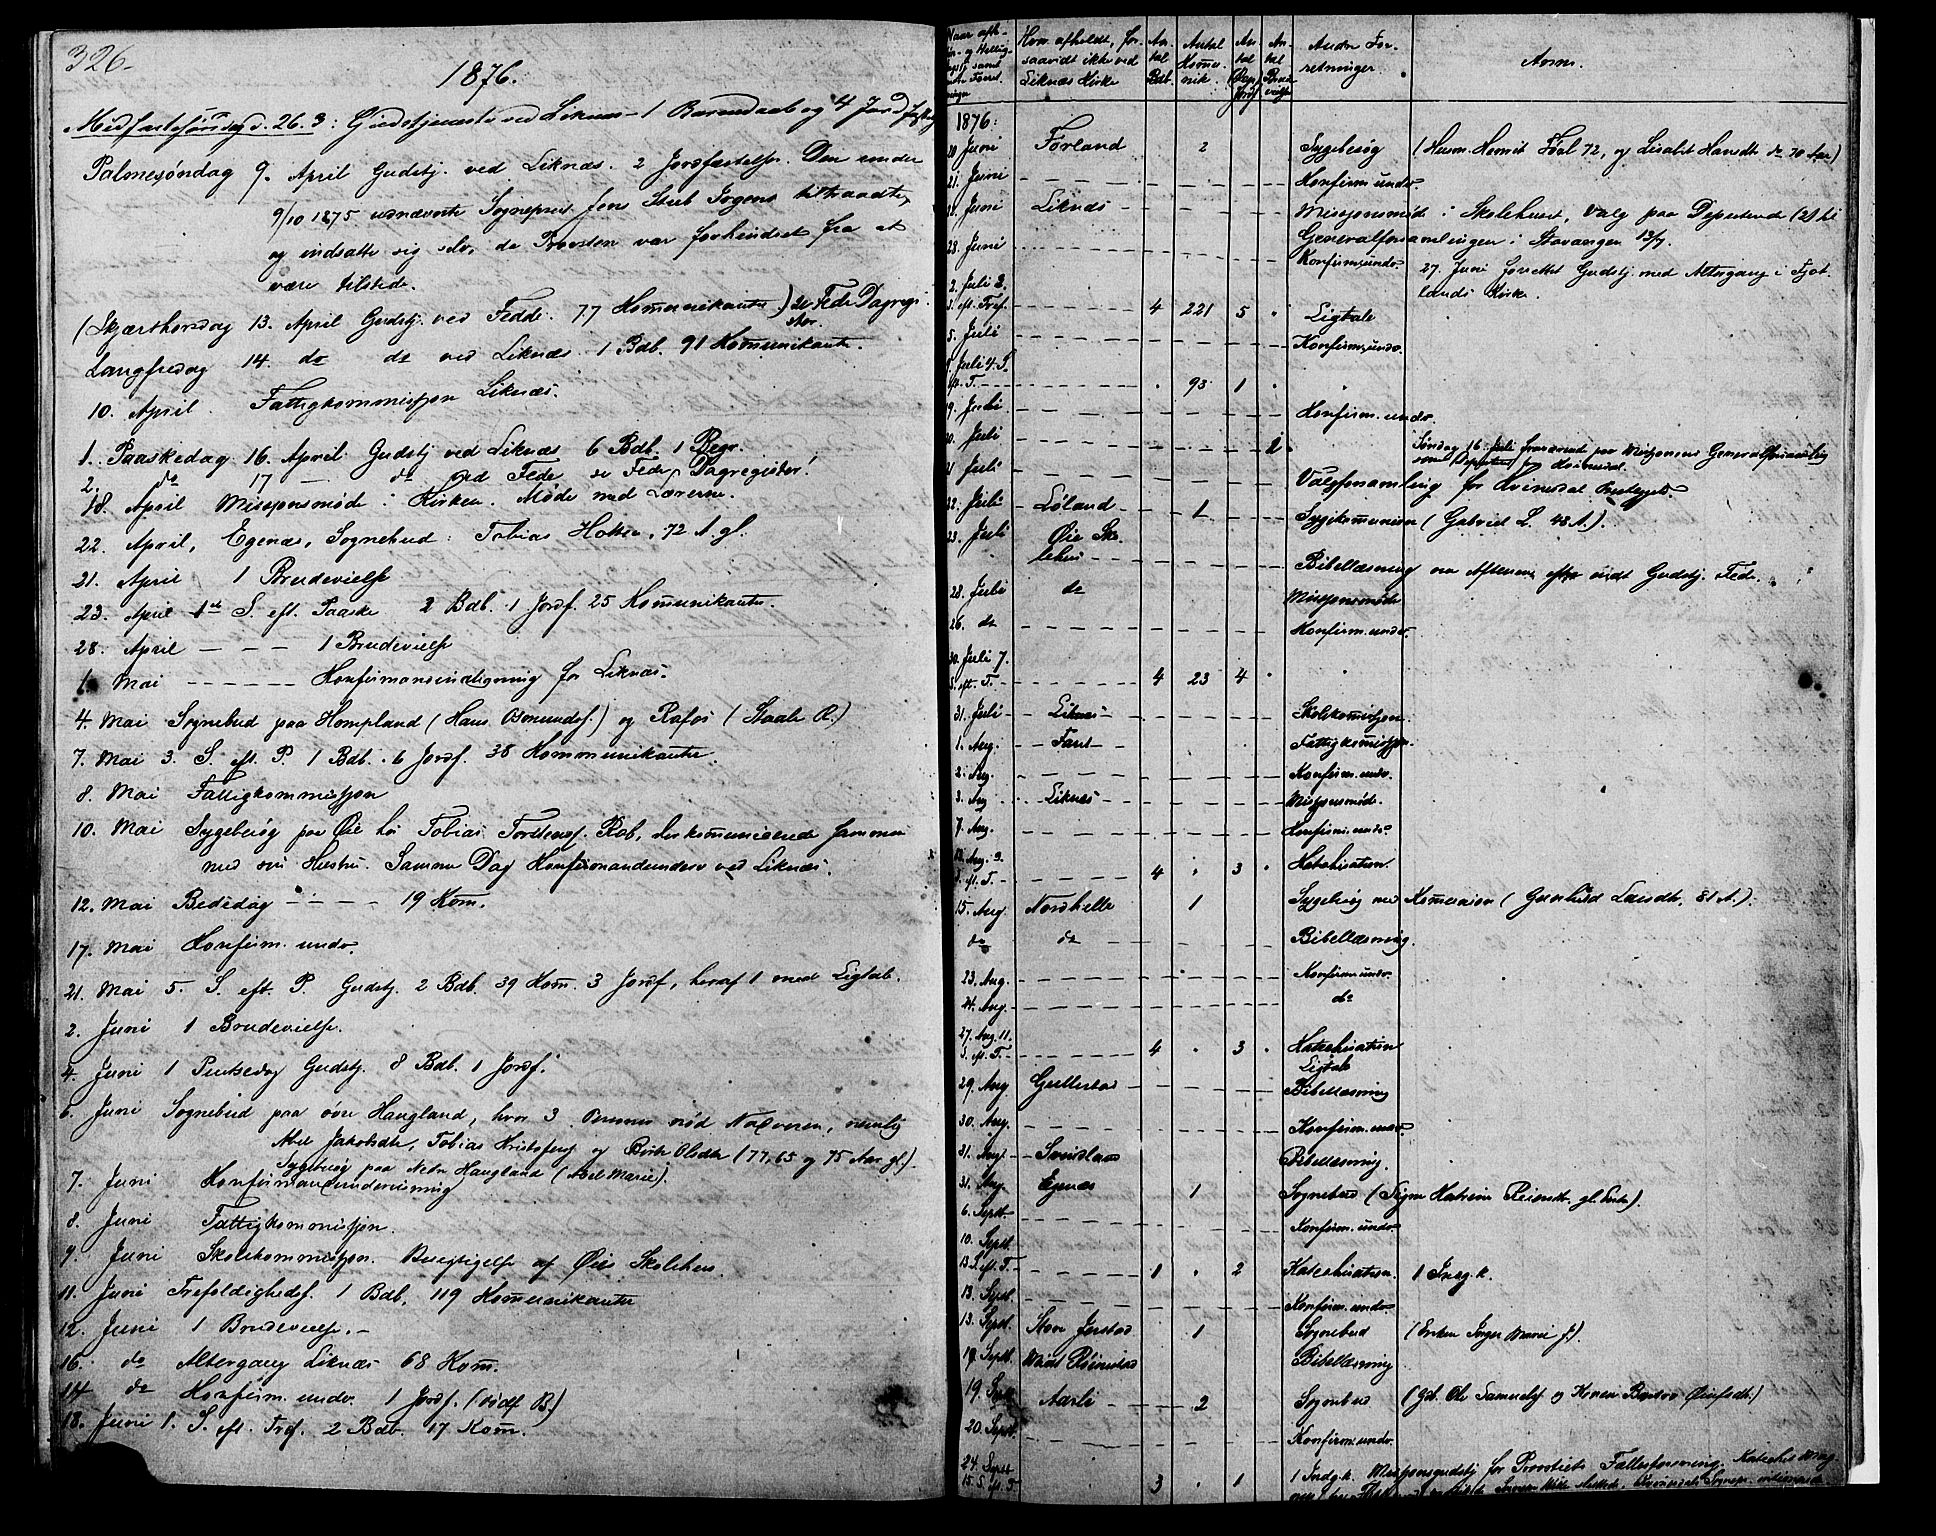 326.
1876.
Midfastesøndag d. 26. 3: Gudstjeneste ved Liknes 1 Barnedaab og 4 Jordfest
Palmesøndag 9. April Gudstj. ved Liknæs. 2 Jordfæstelse. Den under
9/10 1875 udnævnte Sogneprest Jens tiltraadte,
og indsatte sig selv, da Provsten var forhindret fra at
være tilstede.
(Skjærthorsdag 13. April Gudstj. ved Fedde. 77 Kommunikanter) se Fede Dagregi-
ster.
Langfredag 14. do do ved Liknæs. 1 Bdb. 91 Kommunikanter.
10. April. Fattigkommissjon Liknæs.
1. Paaskedag 16. April Gudstj. ved Liknæs 6 Bdb. 1 Begr.
2. do 17 — do ved Fede se Fede Dagregister!
18. April Missjonsmøde i Kirken. Møde med Lærerne.
22. April, Egenæs, Sognebud: Tobias 72 A. gl.
21. April 1 Brudevielse
23. April 1ste S. eft. Paaske 2 Bdb. 1 Jordf. 25 Kommunikanter.
28. April — — — 1 Brudevielse
1. Mai — — — — — — Konfirmansindtegning for Liknæs.
4. Mai Sognebud paa Hompland (Hans Omundsf.) og Rafos (Staale R.)
7. Mai 3. S. eft. P. 1 Bdb. 6 Jordf. 38 Kommunikanter.
8. Mai Fattigkommissjon
10. Mai Sygebesøg paa Øie hos Tobias Rob, der kommunicerede sammen
med sin Hustru. Samme Dag Konfirmandunderv. ved Liknæs.
12. Mai Bededag — — — — 19 Kom.
17. Mai Konfirm. underv.
21. Mai 5. S. eft. P. Gudstj. 2 Bdb. 39 Kom. 3 Jordf, heraf 1 med Ligtale.
2. Juni 1 Brudevielse.
4. Juni 1 Pintsedag Gudstj. 8 Bdb. 1 Jordf.
6. Juni Sognebud paa øvre Haugland, hvor 3 nød Nadveren, nemlig
Abel Jakobsdtr, Tobias Kristofersf og Olsdtr (77, 65 og 75 Aar gl).
Sygebesøg paa Nedre Haugland (Abel Marie).
7. Juni Konfirmandundervisning
8. Juni Fattigkommissjon.
9. Juni Skolekommissjon. Besigtigelse af Øie Skolehus.
11. Juni Trefoldighedsf. 1 Bdb, 119 Kommunikanter
12. Juni 1 Brudevielse. —
16. do Altergang Liknæs 68 Kom.
14 do Konfirm. underv. 1 Jordf. (dødf B)
18. Juni 1. S. eft. Tref. 2 Bdb. 17 Kom.
Naar afh-
Hvor afholdt, for-
saavidt ikke ved
Liknæs Kirke
An-
tal
Bdb.
Antal
Kommu-
nik.
An-
tal
Jordf
An-
tal
Brude-
vielse
Andre For-
retninger
Anm.
1876:
20. Juni Førland 2 Sygebesøg 72, og Lisabet 70 Aar)
21. Juni Konfirm. underv.
Juni Liknæs Missjonsmøde i Skolehuset, Valg paa Deputerede (2) til
Generalforsamlingen i Stavanger 13/7.
28. Juni Konfirm. underv. 27. Juni forrettet Gudstj. med Altergang i Fjot-
lands Kirke.
2. Juli 3.
S. eft. Tref. 4 221 5 Ligtale
5. Juli Konfirm. underv.
9. Juli 4. S.
eft. T. 93 1
19. Juli Konfirm. underv.
20. Juli 2. Søndag 16. Juli fraværende paa Missjonens Generalforsamling
som
21 Juli Valgforsamling for Kvinesdal Prestegjeld.
22. Juli Løland 1 Sygekommunion (Gabriel L. 48 A.).
23. Juli Øie Sko-
lehus Bibellæsning om Aftenen efter endt Gudstj. Fede.
28. Juli do Missjonsmøde
26. do Konfirm. underv.
30. Juli 7.
S. eft. T. 4 23 4
31. Juli Liknæs Skolekommissjon.
1. Aug. Faret Fattigkommissjon.
2. Aug. Konfirm. underv.
3. Aug Liknæs Missjonsmøde.
7. Aug. Konfirm. underv.
13. Aug. 9.
S. eft. T. 4 3 Katekisation.
15. Aug. Nordhelle 1 Sygebesøg med Kommunion (Gunhild Larsdtr, 81 A.).
do do Bibellæsning.
23. Aug. Konfirm. underv.
24. Aug. do
27. Aug. 11.
S. eft. T. 4 3 Katekisation
Ligtale
29. Aug Gullestad Bibellæsning
30. Aug. Konfirm. underv.
31. Aug. Svindland Bibellæsning.
31. Aug. Egenæs 1 Sognebud (Signe Katrine gl. Enke).
6. Septbr. Konfirm. underv.
10. Septbr.
13 S. eft. T. 1 2 Katekisation. 1 Indg. k.
13. Septbr. Konfirm. underv.
13. Septbr. Store Jerstad 1 Sognebud (Enken Inger Marie J.).
19. Septbr. Bibellæsning
19 Septbr. Aarli 2 Sognebud (Gdb. Ole Samuelsf og Konen
20. Septbr. Konfirm. underv.
24. Septbr.
15. S. eft. T 3 1 1 Indg. k. Missjonsgudstj. for Provstiets Fællesforening,